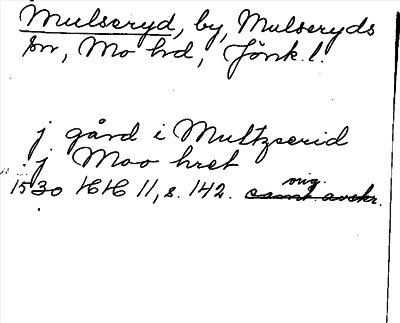 Mulseryd, by, Mulseryds
sn, Mo hd, Jönk. l.
j gård i Multzserid
j Moo hret
1530 HH 11, s. 142. orig.
samt avskr.